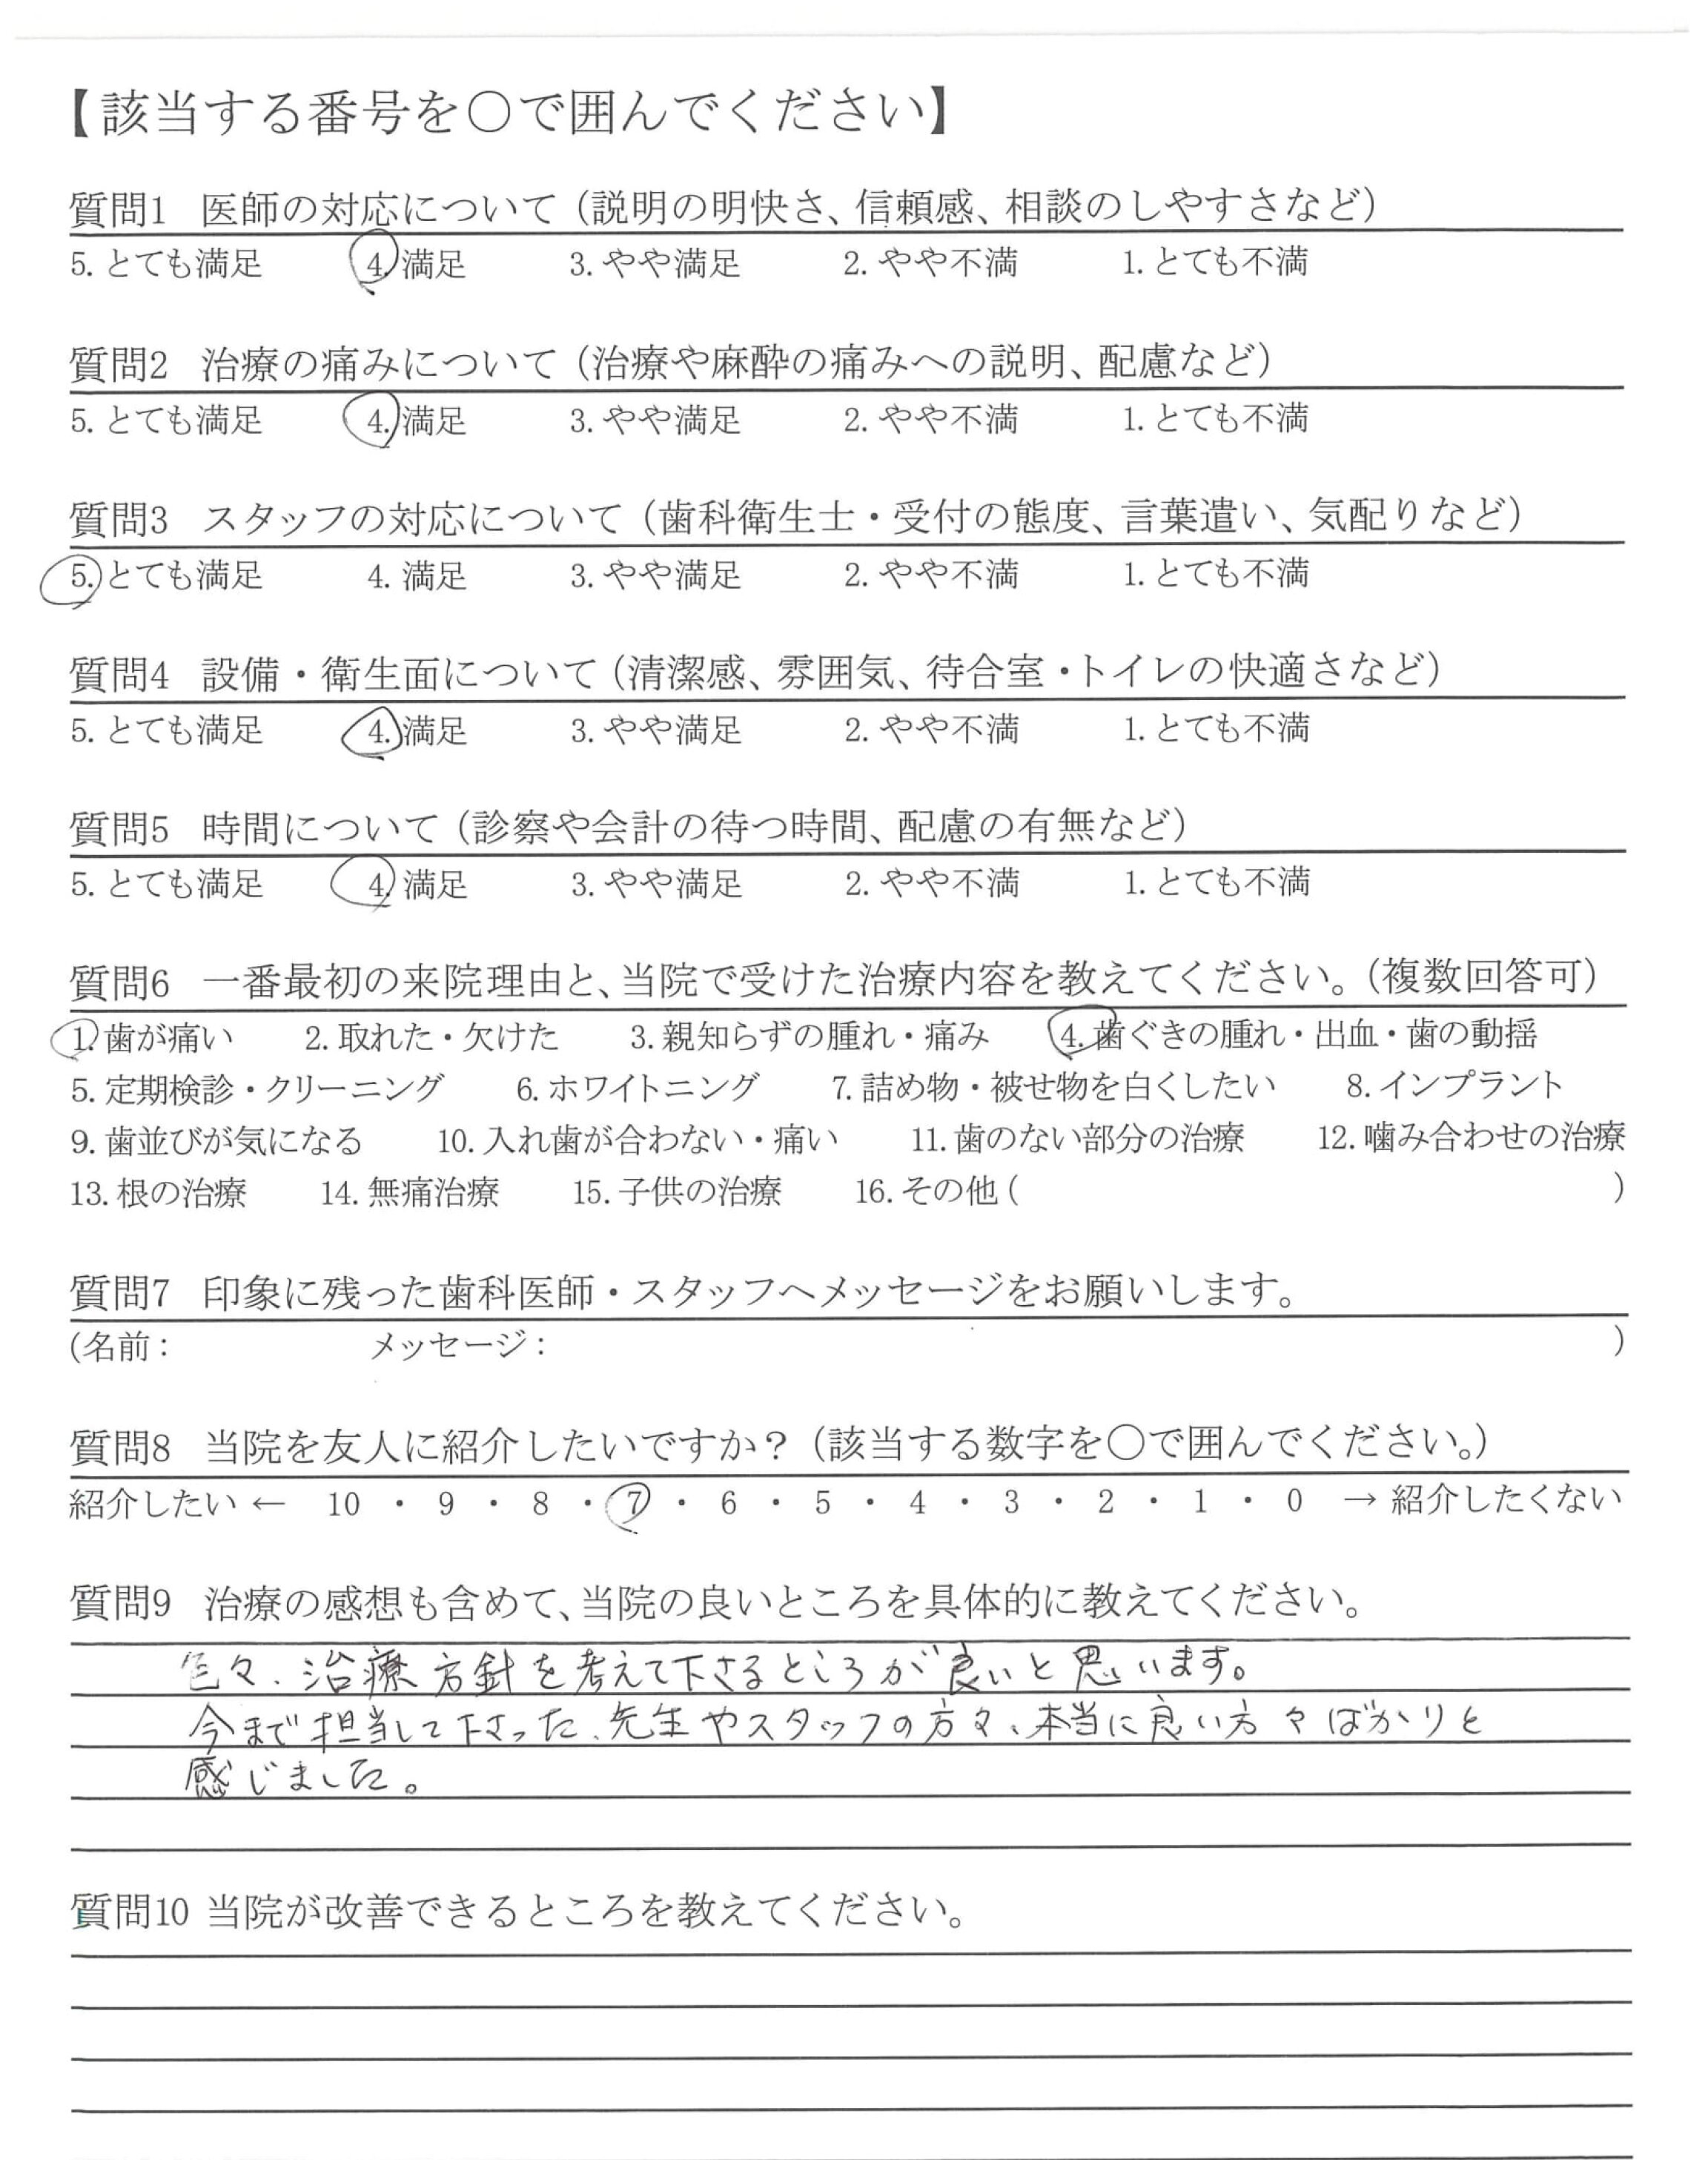 【該当する番号を○で囲んでください】
質問1 医師の対応について（説明の明快さ、信頼感、相談のしやすさなど）
5. とても満足 4. 満足 3. やや満足 2. やや不満 1. とても不満
質問2 治療の痛みについて（治療や麻酔の痛みへの説明、配慮など）
5. とても満足 4. 満足 3. やや満足 2. やや不満 1. とても不満
質問3 スタッフの対応について（歯科衛生士・受付の態度、言葉遣い、気配りなど）
5. とても満足 4. 満足 3. やや満足 2. やや不満 1. とても不満
質問4 設備・衛生面について（清潔感、雰囲気、待合室・トイレの快適さなど）
5. とても満足 4. 満足 3. やや満足 2. やや不満 1. とても不満
質問5 時間について（診察や会計の待つ時間、配慮の有無など）
5. とても満足 4. 満足 3. やや満足 2. やや不満 1. とても不満
質問6 一番最初の来院理由と、当院で受けた治療内容を教えてください。（複数回答可）
1. 歯が痛い 2. 取れた・欠けた 3. 親知らずの腫れ・痛み 4. 歯ぐきの腫れ・出血・歯の動揺
5. 定期検診・クリーニング 6. ホワイトニング 7. 詰め物・被せ物を白くしたい 8. インプラント
9. 歯並びが気になる 10. 入れ歯が合わない・痛い 11. 歯のない部分の治療 12. 噛み合わせの治療
13. 根の治療 14. 無痛治療 15. 子供の治療 16. その他（ ）
質問7 印象に残った歯科医師・スタッフへメッセージをお願いします。
(名前： メッセージ： )
質問8 当院を友人に紹介したいですか？（該当する数字を○で囲んでください。）
紹介したい ← 10 ・ 9 ・ 8 ・ 7 ・ 6 ・ 5 ・ 4 ・ 3 ・ 2 ・ 1 ・ 0 → 紹介したくない
質問9 治療の感想も含めて、当院の良いところを具体的に教えてください。
色々、治療方針を考えて下さるところが良いと思います。
今まで担当して下さった、先生やスタッフの方々、本当に良い方々ばかりと
感じました。
質問10 当院が改善できるところを教えてください。